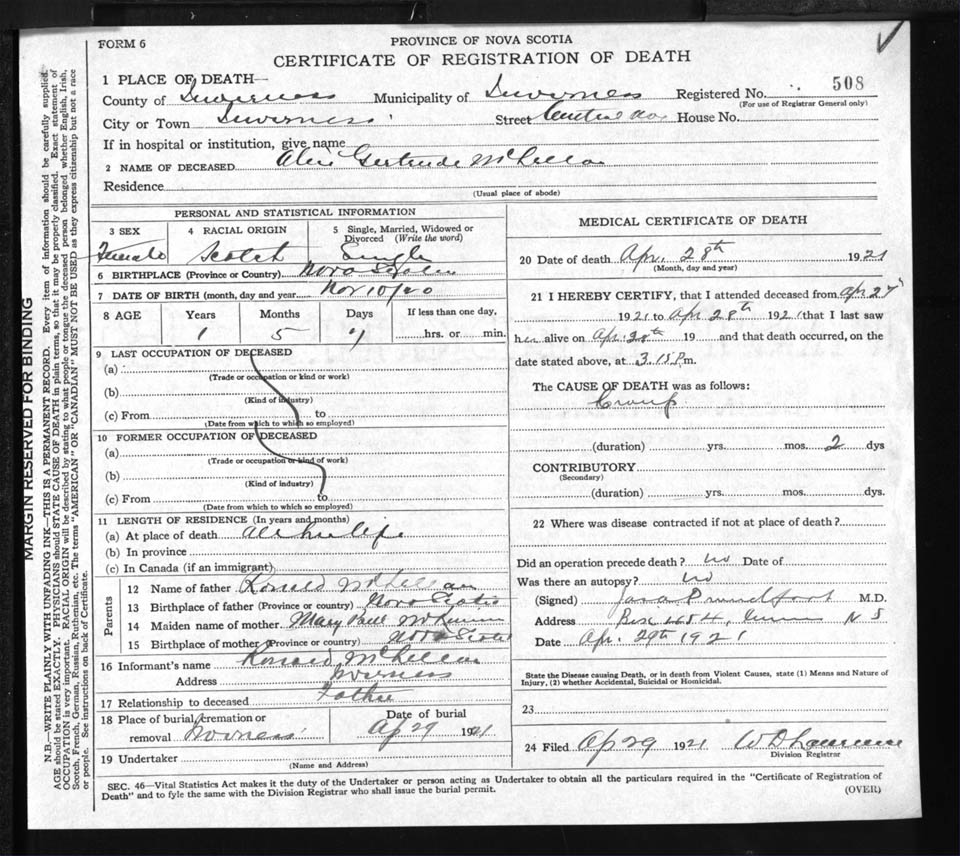 FORM 6
PROVINCE OF NOVA SCOTIA
CERTIFICATE OF REGISTRATION OF DEATH
1 PLACE OF DEATH—
County of Inverness Municipality of Inverness Registered No. 508
(For use of Registrar General only)
City or Town Inverness Street Central Ave House No.
If in hospital or institution, give name
2 NAME OF DECEASED Alice Gertrude McLellan
Residence
(Usual place of abode)
PERSONAL AND STATISTICAL INFORMATION
3 SEX 4 RACIAL ORIGIN 5 Single, Married, Widowed or Divorced (Write the word)
Female Scotch Single
6 BIRTHPLACE (Province or Country) Nova Scotia
7 DATE OF BIRTH (month, day and year Nov 10/20
8 AGE Years Months Days If less than one day,
1 5 hrs. or min.
9 LAST OCCUPATION OF DECEASED
(a)
(Trade or occupation or kind of work)
(b)
(Kind of industry)
(c) From to
(Date from which to which so employed)
10 FORMER OCCUPATION OF DECEASED
(a)
(Trade or occupation or kind of work)
(b)
(Kind of industry)
(c) From to
(Date from which to which so employed)
11 LENGTH OF RESIDENCE (In years and months)
(a) At place of death all her life
(b) In province
(c) In Canada (if an immigrant)
Parents
12 Name of father Ronald McLellan
13 Birthplace of father (Province or country) Nova Scotia
14 Maiden name of mother Mary
15 Birthplace of mother (Province or country) Nova Scotia
16 Informant's name Ronald McLellan
Address Inverness
17 Relationship to deceased Father
18 Place of burial, cremation or removal Inverness Date of burial Ap 29 1921
19 Undertaker
(Name and Address)
MEDICAL CERTIFICATE OF DEATH
20 Date of death Apr. 28th 1921
(Month, day and year)
21 I HEREBY CERTIFY, that I attended deceased from Apr 27th
1921 to Apr 28th 1921 that I last saw
her alive on Apr. 28th 19 and that death occurred, on the
date stated above, at 3.15 P.m.
The CAUSE OF DEATH was as follows:
Croup
(duration) yrs. mos. 2 dys
CONTRIBUTORY
(Secondary)
(duration) yrs. mos. dys.
22 Where was disease contracted if not at place of death?
Did an operation precede death? no Date of
Was there an autopsy? no
(Signed) M.D.
Address Box N S
Date Apr. 29th 1921
State the Disease causing Death, or in death from Violent Causes, state (1) Means and Nature of Injury, (2) whether Accidental, Suicidal or Homicidal.
23
24 Filed Ap 29 1921 W D Lawrence
Division Registrar
SEC. 46—Vital Statistics Act makes it the duty of the Undertaker or person acting as Undertaker to obtain all the particulars required in the "Certificate of Registration of
Death" and to fyle the same with the Division Registrar who shall issue the burial permit.
(OVER)
MARGIN RESERVED FOR BINDING
N.B.—WRITE PLAINLY WITH UNFADING INK—THIS IS A PERMANENT RECORD. Every item of information should be carefully supplied.
AGE should be stated EXACTLY. PHYSICIANS should STATE CAUSE OF DEATH in plain terms, so that it may be properly classified. Exact statement of
OCCUPATION is very important. RACIAL ORIGIN will be described by stating to what people or tongue the deceased person belonged whether English, Irish,
Scotch, French, German, Russian, Ruthenian, etc. The terms "AMERICAN" or "CANADIAN" MUST NOT BE USED as they express citizenship but not a race
or people. See instructions on back of Certificate.